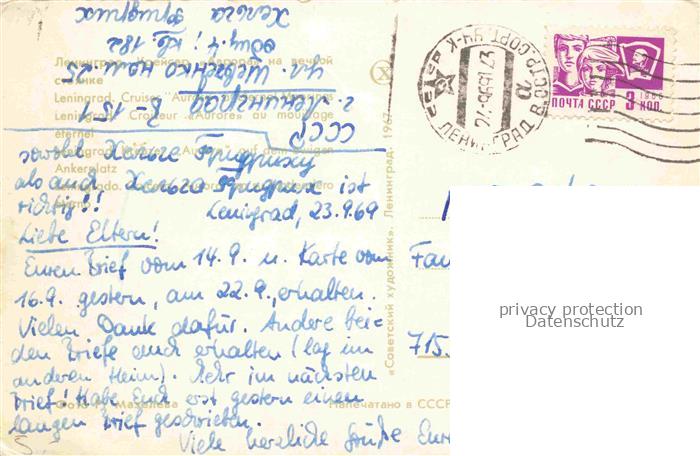 Хельга Фридрих
общ. 4; кв. 182
ул. Шевченко дом 25
г. Ленинград В-151
СССР
Ленинград. Крейсер «Аврора» на вечной
стоянке
Leningrad. Cruiser "Aurora"
Leningrad. Croiseur «Aurore» au mouillage
éternel
Ankerplatz
sowohl Хельге Фридриху
als auch Хельга Фридрих ist
richtig!!
Leningrad, 23.9.69
Liebe Eltern!
Euren Brief vom 14.9. u. Karte vom
16.9. gestern, am 22.9., erhalten.
Vielen Dank dafür. Andere bei-
den Briefe auch erhalten (lag im
anderen Heim). Mehr im nächsten
Brief! Habe Euch erst gestern einen
langen Brief geschrieben.
Viele herzliche Grüße Eure
Напечатано в СССР
«Советский художник». Ленинград. 1967
ЛЕНИНГРАД
ПОЧТА СССР 3 КОП.
1966
Fam
715
privacy protection
Datenschutz